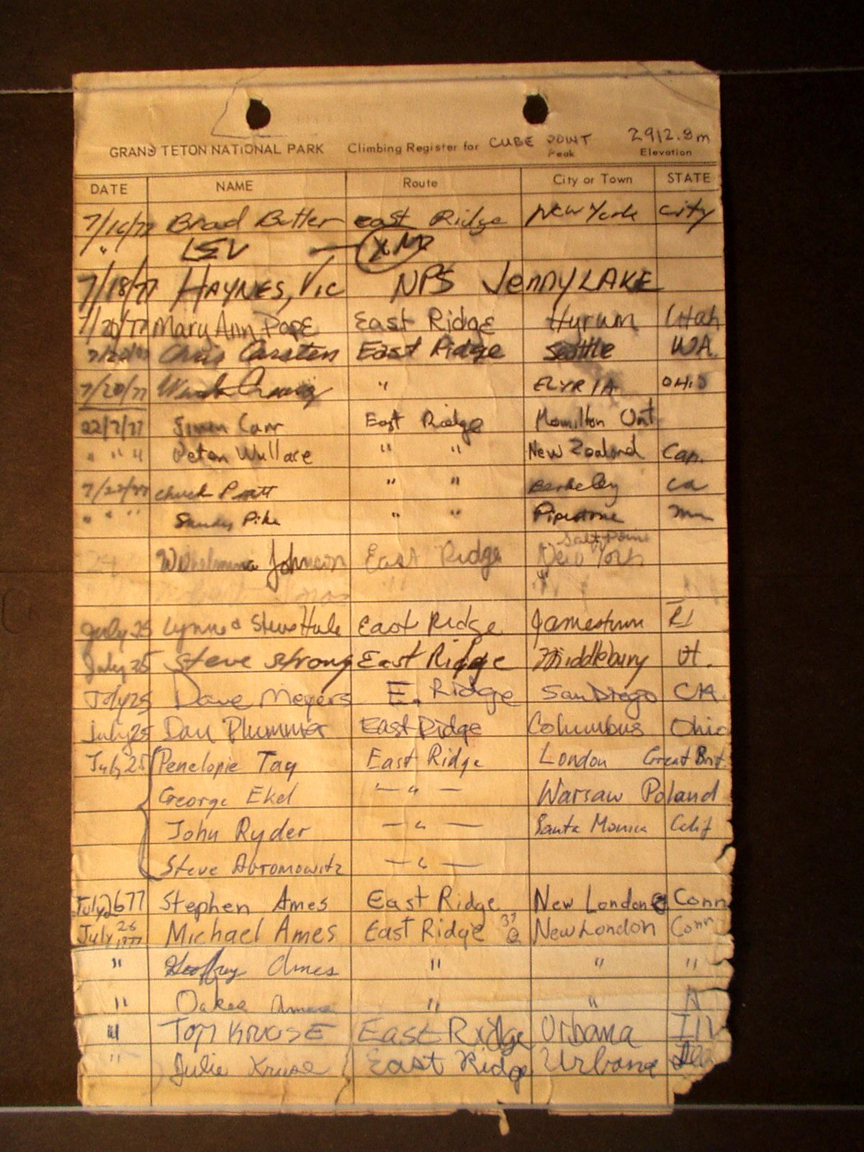 GRAND TETON NATIONAL PARK Climbing Register for CUBE POINT 2912.8m
Peak Elevation
DATE NAME Route City or Town STATE
7/16/77 Brad Butler east Ridge New York City
" LEV
7/18/77 HAYNES, Vic NPS Jenny LAKE
7/20/77 Mary Ann Pope East Ridge Hyrum Utah
Chris Carsten East Ridge Seattle WA.
7/20/77 " ELYRIA OHIO
22/7/77 Simon Carr East Ridge Hamilton Ont
" " " Peter Wallace " " New Zealand Can.
7/22/77 Chuck Pratt " " Berkeley Ca
" " " Sandy Pike " " Pipestone mn
Salt Point
Wilhelmina Johnson East Ridge New York
"
July 25 Lynne & Steve Hale East Ridge Jamestown RI
July 25 Steve Strong East Ridge Middlebury Vt.
July 25 Dave Meyers E. Ridge San Diego CA
July 25 Dan Plummer East Ridge Columbus Ohio
July 25 Penelopie Tay East Ridge London Great Brit.
George Ekel — " — Warsaw Poland
John Ryder — " — Santa Monica Calif
Steve Abromowitz — " —
July 26 77 Stephen Ames East Ridge New London Conn
July 26 1977 Michael Ames East Ridge New London Conn
" Geoffrey Ames " " "
" Oakes Ames " "
" Tom KRUSE East Ridge Urbana Ill
" Julie Kruse East Ridge Urbana Ill